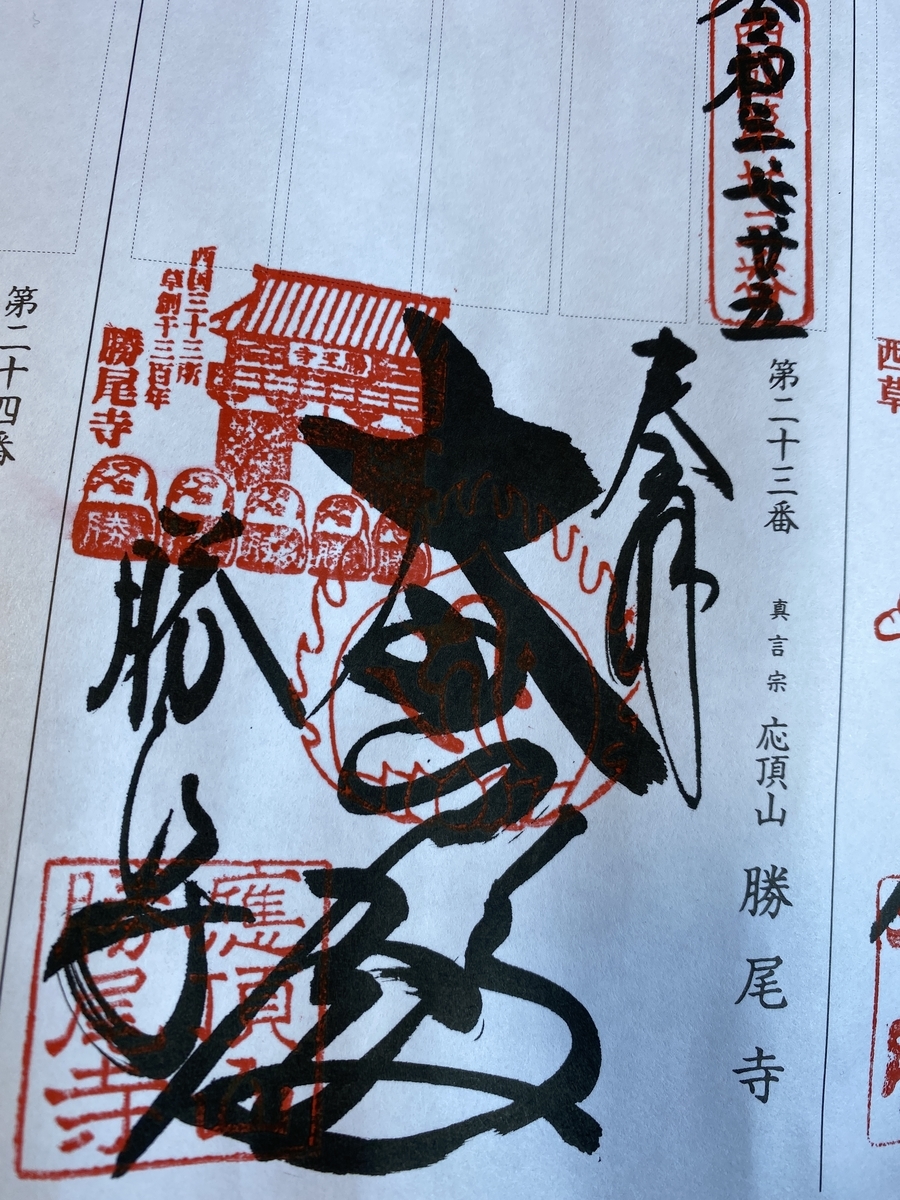 西
草
令和三
廿五
第二十三番
真言宗
応頂山
勝尾寺
奉拝
大悲殿
勝尾寺
西国三十三所
草創千三百年
勝尾寺
寺王勝
勝
勝
勝
勝
勝
應頂山
勝尾寺
第二十四番